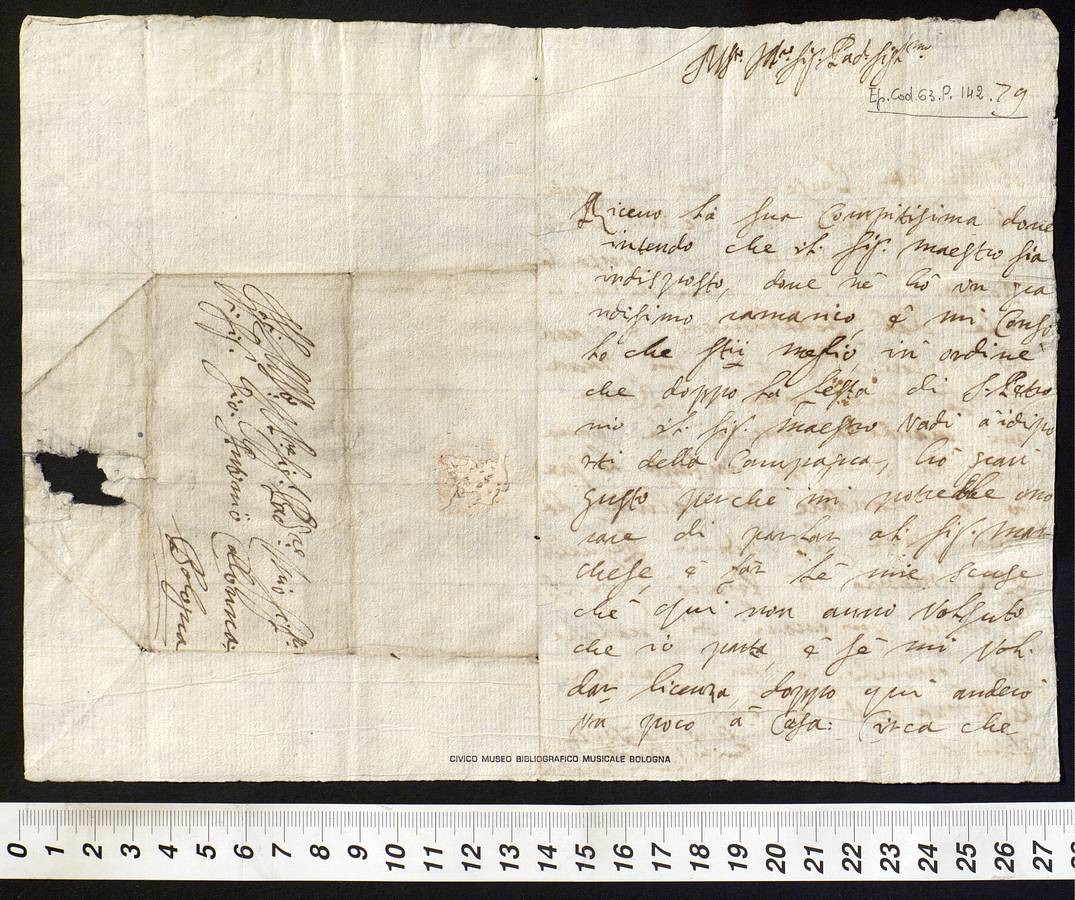 Ep. Cod. 63. P. 142. 79
Riceuo la sua Compitisima doue
intendo che il sig. maestro sia
indisposto, doue nè hò un gra
ndisimo ramarico, è mi Conso
lo che stij meglio in ordine
che doppo la festa di S. Petro
nio il sig. maestro vadi à
rti della Campagna, hò gran
gusto perche mi potrebbe ono
rare di parlar al sig. mar
chese, è far lè mie scuse
chè qui non anno Volsuto
che io parta, è sè mi vol.
dar licenza, doppo qui anderò
un poco à Casa: Circa che
Sig. Gio. Antonio Colonna.
Bologna
CIVICO MUSEO BIBLIOGRAFICO MUSICALE BOLOGNA
0 1 2 3 4 5 6 7 8 9 10 11 12 13 14 15 16 17 18 19 20 21 22 23 24 25 26 27